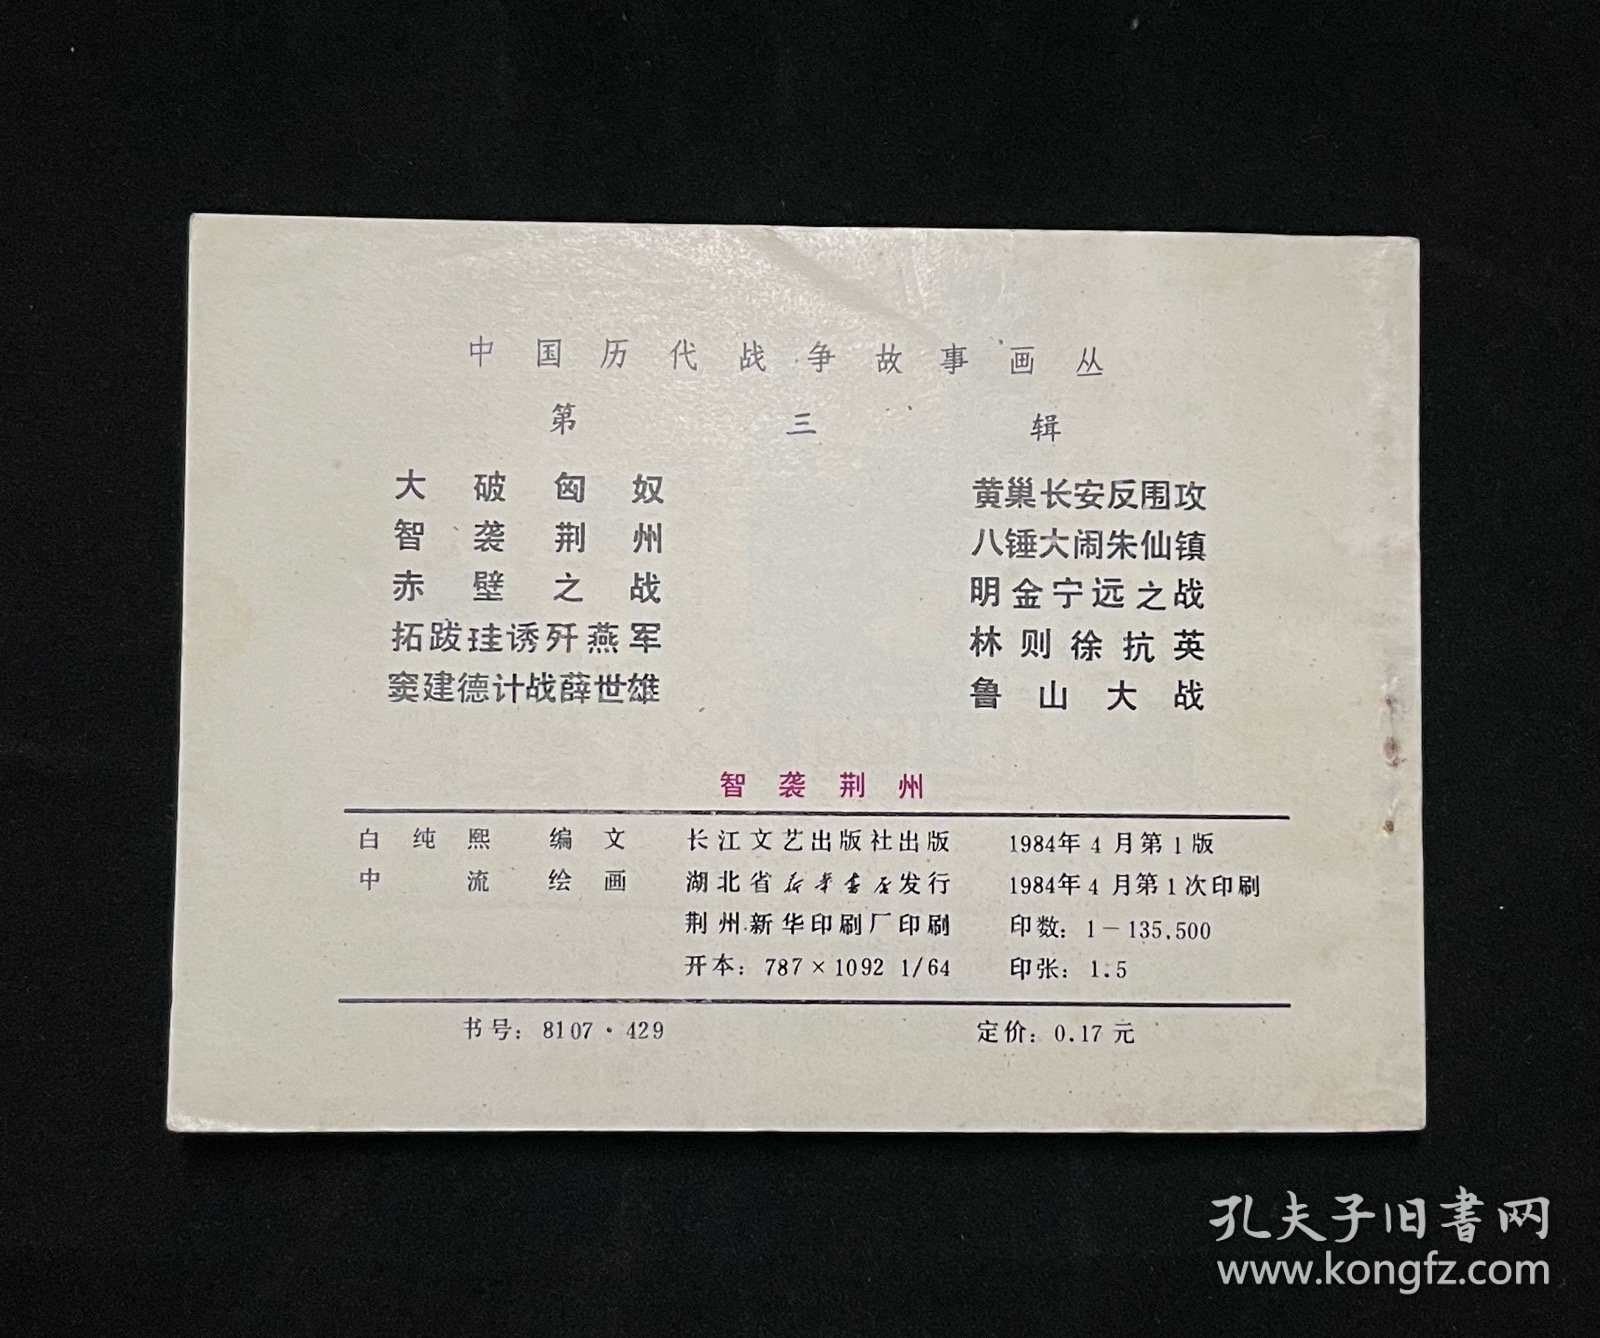 中国历代战争故事画丛
第三辑
大破匈奴
智袭荆州
赤壁之战
拓跋珪诱歼燕军
窦建德计战薛世雄
黄巢长安反围攻
八锤大闹朱仙镇
明金宁远之战
林则徐抗英
鲁山大战
智袭荆州
白纯熙 编文 长江文艺出版社出版 1984年4月第1版
中流 绘画 湖北省新华书店发行 1984年4月第1次印刷
荆州新华印刷厂印刷 印数: 1－135,500
开本: 787×1092 1/64 印张: 1.5
书号: 8107·429 定价: 0.17元
孔夫子旧书网
www.kongfz.com